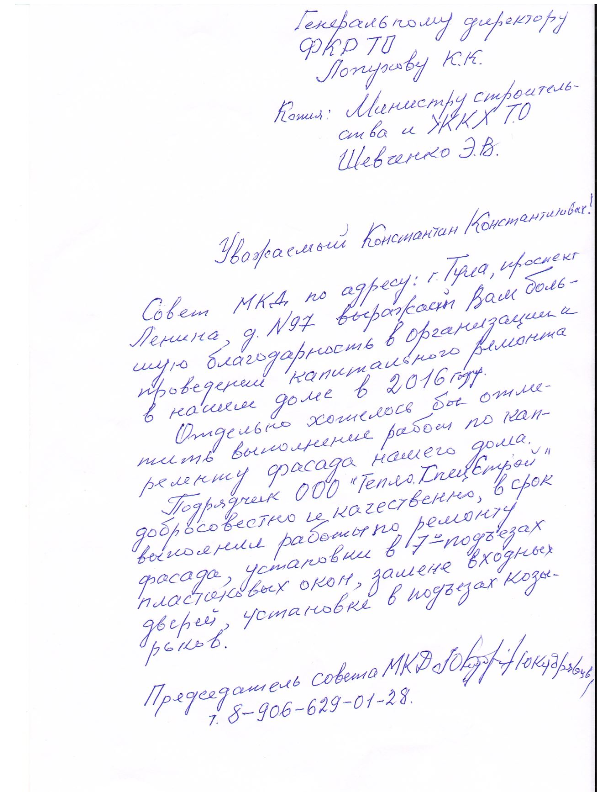 Генеральному директору
ФКР ТО
Лопухову К.К.
Копия: Министру строитель-
ства и ЖКХ ТО
Шевченко Э.В.
Уважаемый Константин Константинович!
Совет МКД по адресу: г. Тула, проспект
Ленина, д. N97 выражает Вам боль-
шую благодарность в организации и
проведении капитального ремонта
в нашем доме в 2016 году.
Отдельно хотелось бы отме-
тить выполнение работ по кап-
ремонту фасада нашего дома.
Подрядчик ООО "ТеплоСпецСтрой"
добросовестно и качественно, в срок
выполнил работы по ремонту
фасада, установки в 7-подъезах
пластиковых окон, замене входных
дверей, установке в подъезах козы-
рьков.
Председатель совета МКД
т. 8-906-629-01-28.